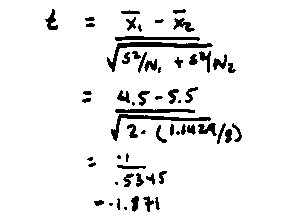 t = x̄₁ - x̄₂
√s²/N₁ + s²/N₂
= 4.5 - 5.5
√2 · (1.1429/8)
= -1
.5345
= -1.871